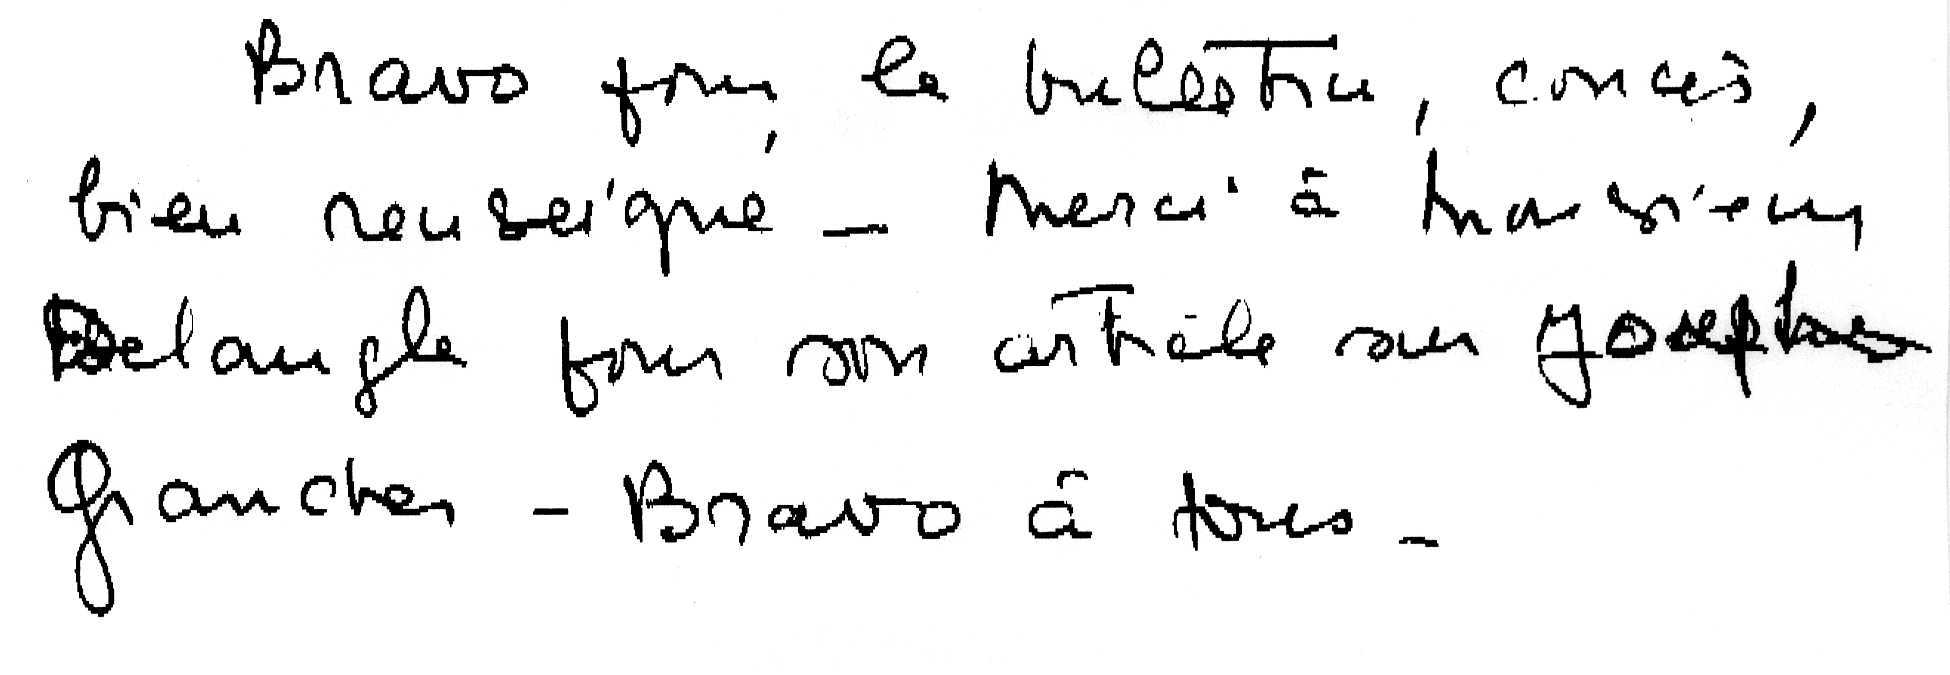 Bravo pour le bulletin, concis,
bien renseigné - Merci à Monsieur
Delangle pour son article sur Joseph
Grancher - Bravo à tous -